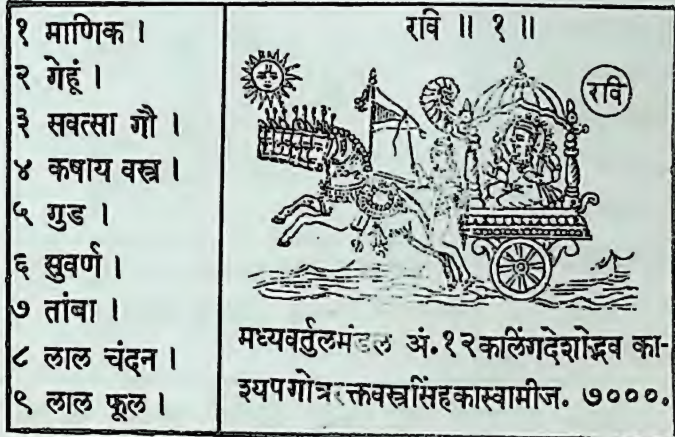 १ माणिक ।
२ गेहूं ।
३ सवत्सा गौ ।
४ कषाय वस्त्र ।
५ गुड ।
६ सुवर्ण ।
७ तांबा ।
८ लाल चंदन ।
९ लाल फूल ।
रवि ॥ १ ॥
रवि
मध्यवर्तुलमंडल अं.१२कालिंगदेशोद्भव का-
श्यपगोत्ररक्तवस्त्रसिंहकास्वामीज. ७०००.